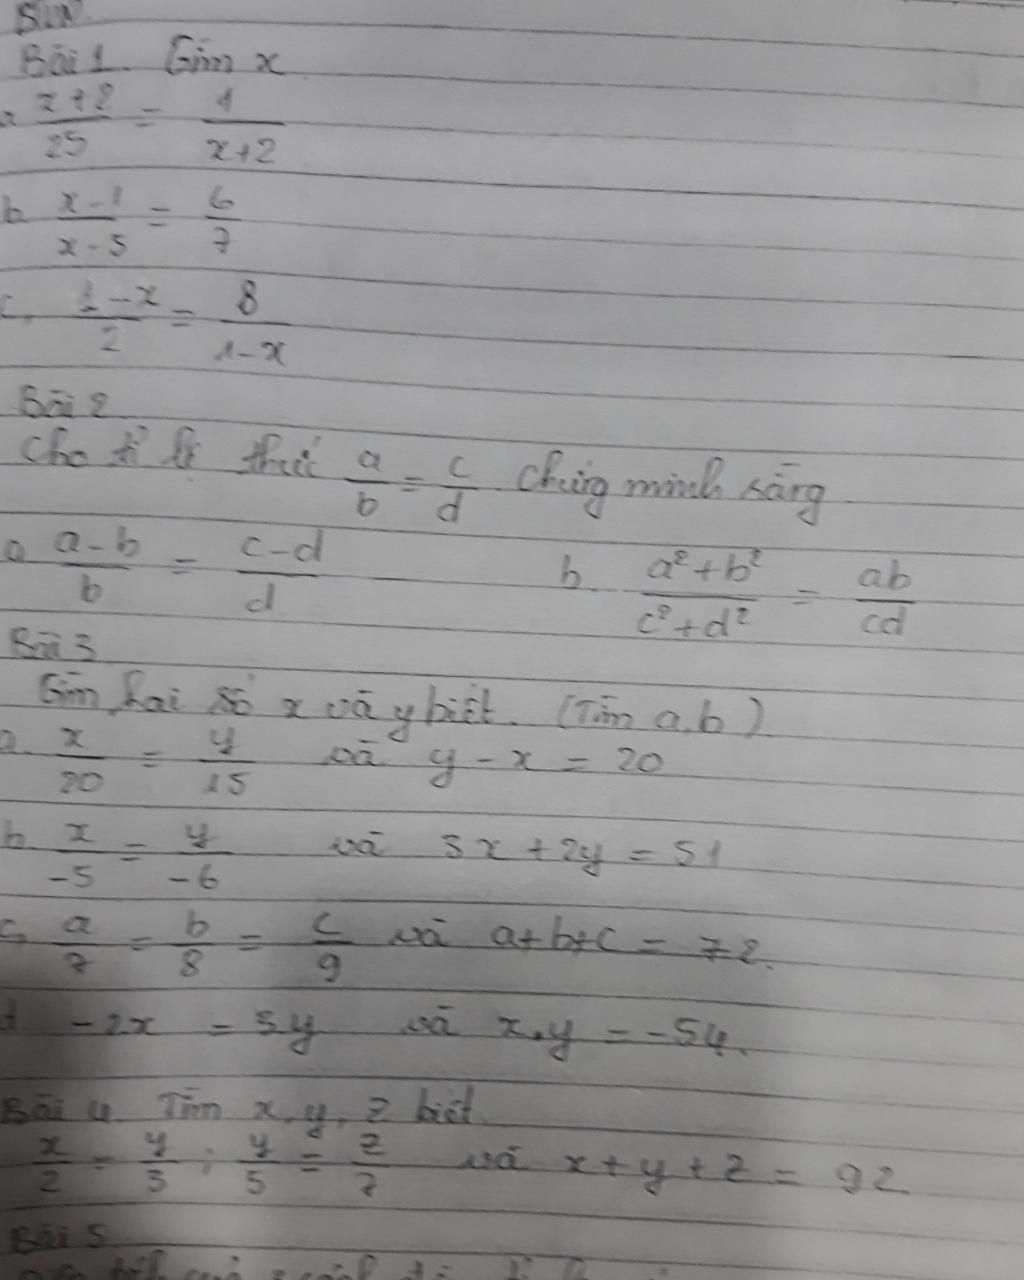 Bài 1. Tìm x
a x+2/25 = 1/x+2
b x-1/x-5 = 6/7
c, 1-x/2 = 8/1-x
Bài 2
Cho tỉ lệ thức a/b = c/d Chứng minh rằng
a a-b/b = c-d/d b a²+b²/c²+d² = ab/cd
Bài 3
Tìm hai số x và y biết. (Tìm a,b)
a. x/20 = y/15 và y - x = 20
b x/-5 = y/-6 và 3x + 2y = 51
c, a/7 = b/8 = c/9 và a+b+c = 72.
d -2x = 3y và x.y = -54.
Bài 4 Tìm x, y, z biết.
x/2 = y/3 ; y/5 = z/7 và x + y + z = 92.
Bài 5